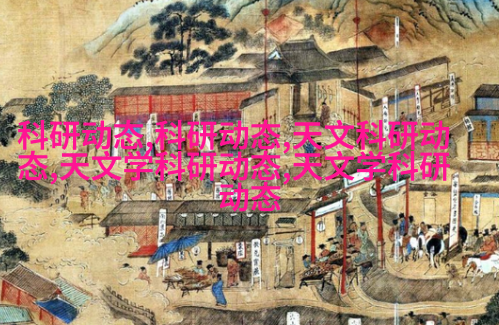 科研动态,科研动态,天文科研动
态,天文学科研动态,天文学科研
动态